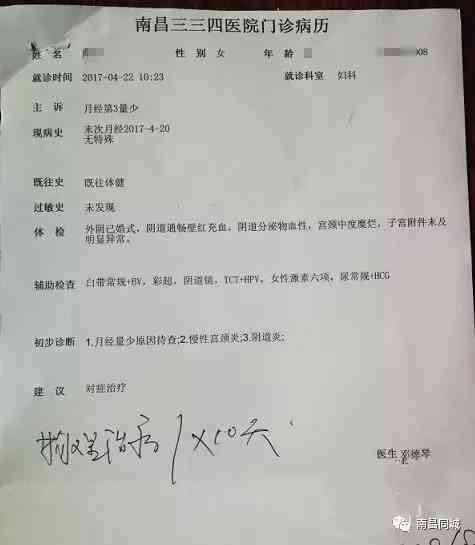 南昌三三四医院门诊病历
姓 名 性 别 女 年 龄 008
就诊时间 2017-04-22 10:23 就诊科室 妇科
主 诉 月经第3量少
现病史 末次月经2017-4-20
无特殊
既往史 既往体健
过敏史 未发现
体 检 外阴已婚式，阴道通畅壁红充血，阴道分泌物血性，宫颈中度糜烂，子宫附件未及
明显异常。
辅助检查 白带常规+BV，彩超，阴道镜，TCT+HPV，女性激素六项，尿常规+HCG
初步诊断 1.月经量少原因待查;2.慢性宫颈炎;3.阴道炎;
建 议 对症治疗
物理治疗 1×10天
医生 邓德琴
南昌同城